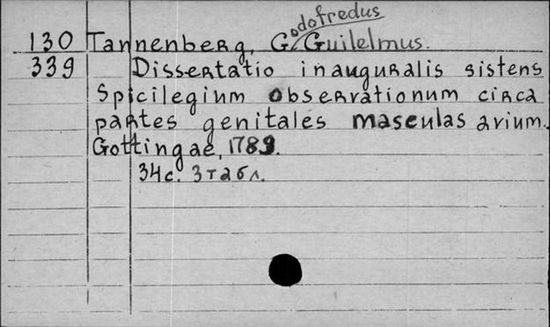 130 Tannenberg, Godofredus Guilelmus.
339 Dissertatio inauguralis sistens
Spicilegium observationum circa
partes genitales masculas avium.
Gottingae, 1789.
34с. 3 табл.